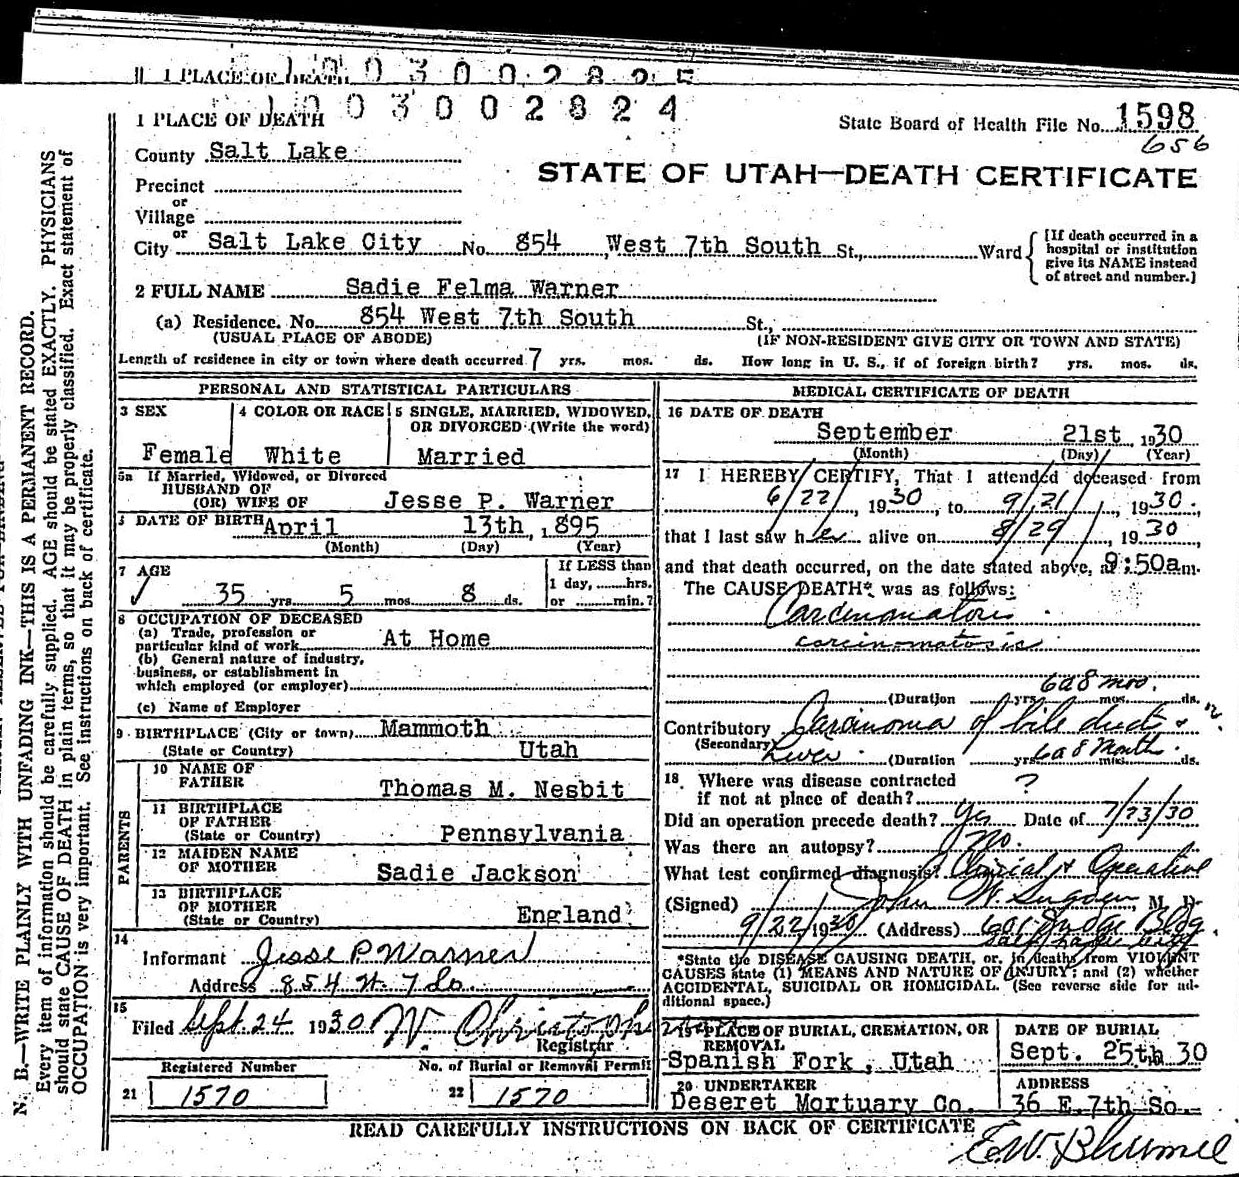 1 PLACE OF DEATH 1003002825
1003002824
1 PLACE OF DEATH
State Board of Health File No. 1598
656
County Salt Lake
STATE OF UTAH—DEATH CERTIFICATE
Precinct
or
Village
or
City Salt Lake City No. 854 West 7th South St., Ward
[If death occurred in a hospital or institution give its NAME instead of street and number.]
2 FULL NAME Sadie Felma Warner
(a) Residence. No. 854 West 7th South St.,
(USUAL PLACE OF ABODE) (IF NON-RESIDENT GIVE CITY OR TOWN AND STATE)
Length of residence in city or town where death occurred 7 yrs. mos. ds. How long in U. S., if of foreign birth? yrs. mos. ds.
PERSONAL AND STATISTICAL PARTICULARS
3 SEX Female
4 COLOR OR RACE White
5 SINGLE, MARRIED, WIDOWED, OR DIVORCED (Write the word) Married
5a If Married, Widowed, or Divorced
HUSBAND OF
(OR) WIFE OF Jesse P. Warner
DATE OF BIRTH April 13th, 1895
(Month) (Day) (Year)
7 AGE
35 yrs. 5 mos. 8 ds.
If LESS than 1 day, hrs. or min.?
8 OCCUPATION OF DECEASED
(a) Trade, profession or
particular kind of work At Home
(b) General nature of industry,
business, or establishment in
which employed (or employer)
(c) Name of Employer
9 BIRTHPLACE (City or town) Mammoth
(State or Country) Utah
PARENTS
10 NAME OF FATHER Thomas M. Nesbit
11 BIRTHPLACE OF FATHER (State or Country) Pennsylvania
12 MAIDEN NAME OF MOTHER Sadie Jackson
13 BIRTHPLACE OF MOTHER (State or Country) England
14
Informant Jesse P Warner
Address 854 W. 7 So.
15
Filed Sept. 24 1930 W. Christoph
Registrar
Registered Number No. of Burial or Removal Permit
21 1570 22 1570
MEDICAL CERTIFICATE OF DEATH
16 DATE OF DEATH
September 21st, 1930
(Month) (Day) (Year)
17 I HEREBY CERTIFY, That I attended deceased from
6/22, 1930, to 9/21, 1930.
that I last saw her alive on 8/29, 1930
and that death occurred, on the date stated above, at 9:50a m.
The CAUSE DEATH* was as follows:
Carcinomatosis
carcinomatosis
6 a 8 mos.
(Duration yrs. mos. ds.
Contributory Carcinoma of bile duct &
(Secondary) Liver (Duration yrs. 6 a 8 Month mos. ds.
18. Where was disease contracted
if not at place of death? ?
Did an operation precede death? Yes Date of 7/23/30
Was there an autopsy? No.
What test confirmed diagnosis? Clinical & Operative
(Signed) John W Sugden, M. D.
9/22, 1930 (Address) 601 Bldg.
Salt Lake City
*State the DISEASE CAUSING DEATH, or, in deaths from VIOLENT
CAUSES state (1) MEANS AND NATURE OF INJURY; and (2) whether
ACCIDENTAL, SUICIDAL OR HOMICIDAL. (See reverse side for additional space.)
19 PLACE OF BURIAL, CREMATION, OR REMOVAL
Spanish Fork, Utah
DATE OF BURIAL
Sept. 25th 30
20 UNDERTAKER
Deseret Mortuary Co.
ADDRESS
36 E. 7th So.
READ CAREFULLY INSTRUCTIONS ON BACK OF CERTIFICATE
N. B.—WRITE PLAINLY WITH UNFADING INK—THIS IS A PERMANENT RECORD.
Every item of information should be carefully supplied. AGE should be stated EXACTLY. PHYSICIANS
should state CAUSE OF DEATH in plain terms, so that it may be properly classified. Exact statement of
OCCUPATION is very important. See instructions on back of certificate.